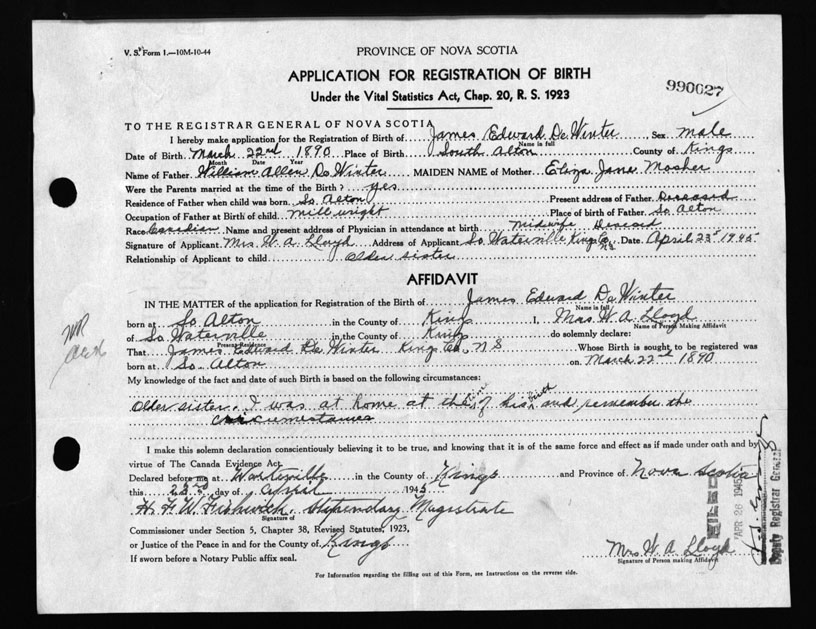 V. S. Form 1.—10M-10-44
PROVINCE OF NOVA SCOTIA
APPLICATION FOR REGISTRATION OF BIRTH
Under the Vital Statistics Act, Chap. 20, R. S. 1923
990027
TO THE REGISTRAR GENERAL OF NOVA SCOTIA
I hereby make application for the Registration of Birth of James Edward De Winter, Sex male
Name in full
Date of Birth March 22nd 1890 Place of Birth South Alton County of Kings
Month Date Year
Name of Father William Allen De Winter MAIDEN NAME of Mother Eliza Jane Mosher
Were the Parents married at the time of the Birth? yes
Residence of Father when child was born So. Alton Present address of Father Deceased
Occupation of Father at Birth of child millwright Place of birth of Father So. Alton
Race Canadian Name and present address of Physician in attendance at birth midwife Deceased
Signature of Applicant Mrs. W. A. Lloyd Address of Applicant So Waterville Kings Co. N.S. Date April 23rd 1945
Relationship of Applicant to child Older sister
AFFIDAVIT
IN THE MATTER of the application for Registration of the Birth of James Edward De Winter
Name in full
born at So Alton in the County of Kings I, Mrs W. A. Lloyd
Name of Person Making Affidavit
of So. Waterville in the County of Kings do solemnly declare:
Present Residence
That James Edward De Winter Kings Co., N S Whose Birth is sought to be registered was
born at So. Alton on March 22nd 1890
My knowledge of the fact and date of such Birth is based on the following circumstances:
Older sister. I was at home at the time of his birth and remember the
circumstances
I make this solemn declaration conscientiously believing it to be true, and knowing that it is of the same force and effect as if made under oath and by
virtue of The Canada Evidence Act.
Declared before me at Waterville in the County of Kings and Province of Nova Scotia
this 23rd day of April 1945
H. F. W. Stipendary Magistrate
Signature of
Commissioner under Section 5, Chapter 38, Revised Statutes, 1923,
or Justice of the Peace in and for the County of Kings
If sworn before a Notary Public affix seal.
Mrs. W. A. Lloyd
Signature of Person making Affidavit
For Information regarding the filling out of this Form, see Instructions on the reverse side.
FILED
APR 26 1945
Deputy Registrar General